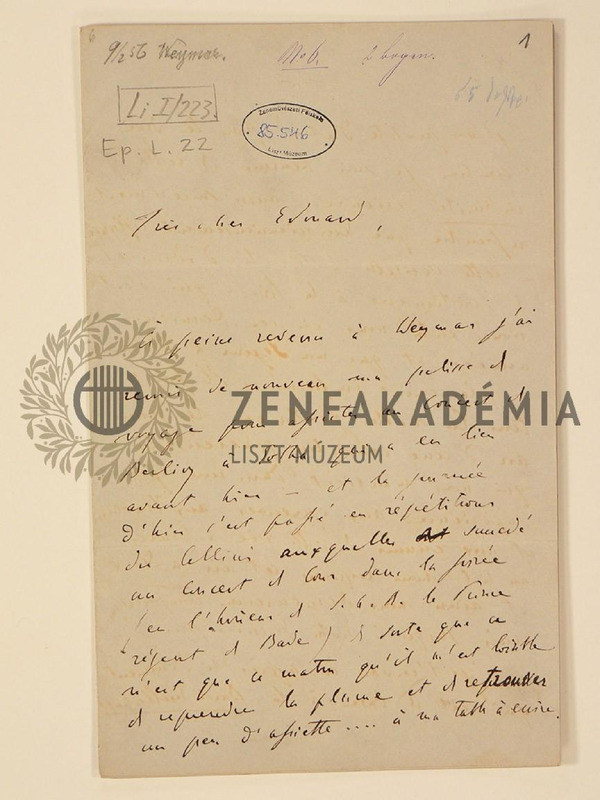 9/2 56 Weymar.
No 6. 2 bogen.
1
Li I/223.
Ep. L. 22
Zeneművészeti Főiskola
85.546
Liszt Múzeum
Très cher Edouard,
A peine revenu à Weymar j'ai
remis de nouveau ma pelisse de
voyage pour assister au Concert de
Berlioz à Gotha qui a eu lieu
avant hier – et la journée
d'hier s'est passé en répétitions
du Cellini auxquelles succédé
un Concert de Cour dans la soirée
(en l'honneur de S. A. R. le Prince
régent de Bade) de sorte que ce
n'est que ce matin qu'il m'est loisible
de reprendre la plume et de retrouver
un peu d'assiette .... à ma table à écrire.
ZENEAKADÉMIA
LISZT MÚZEUM